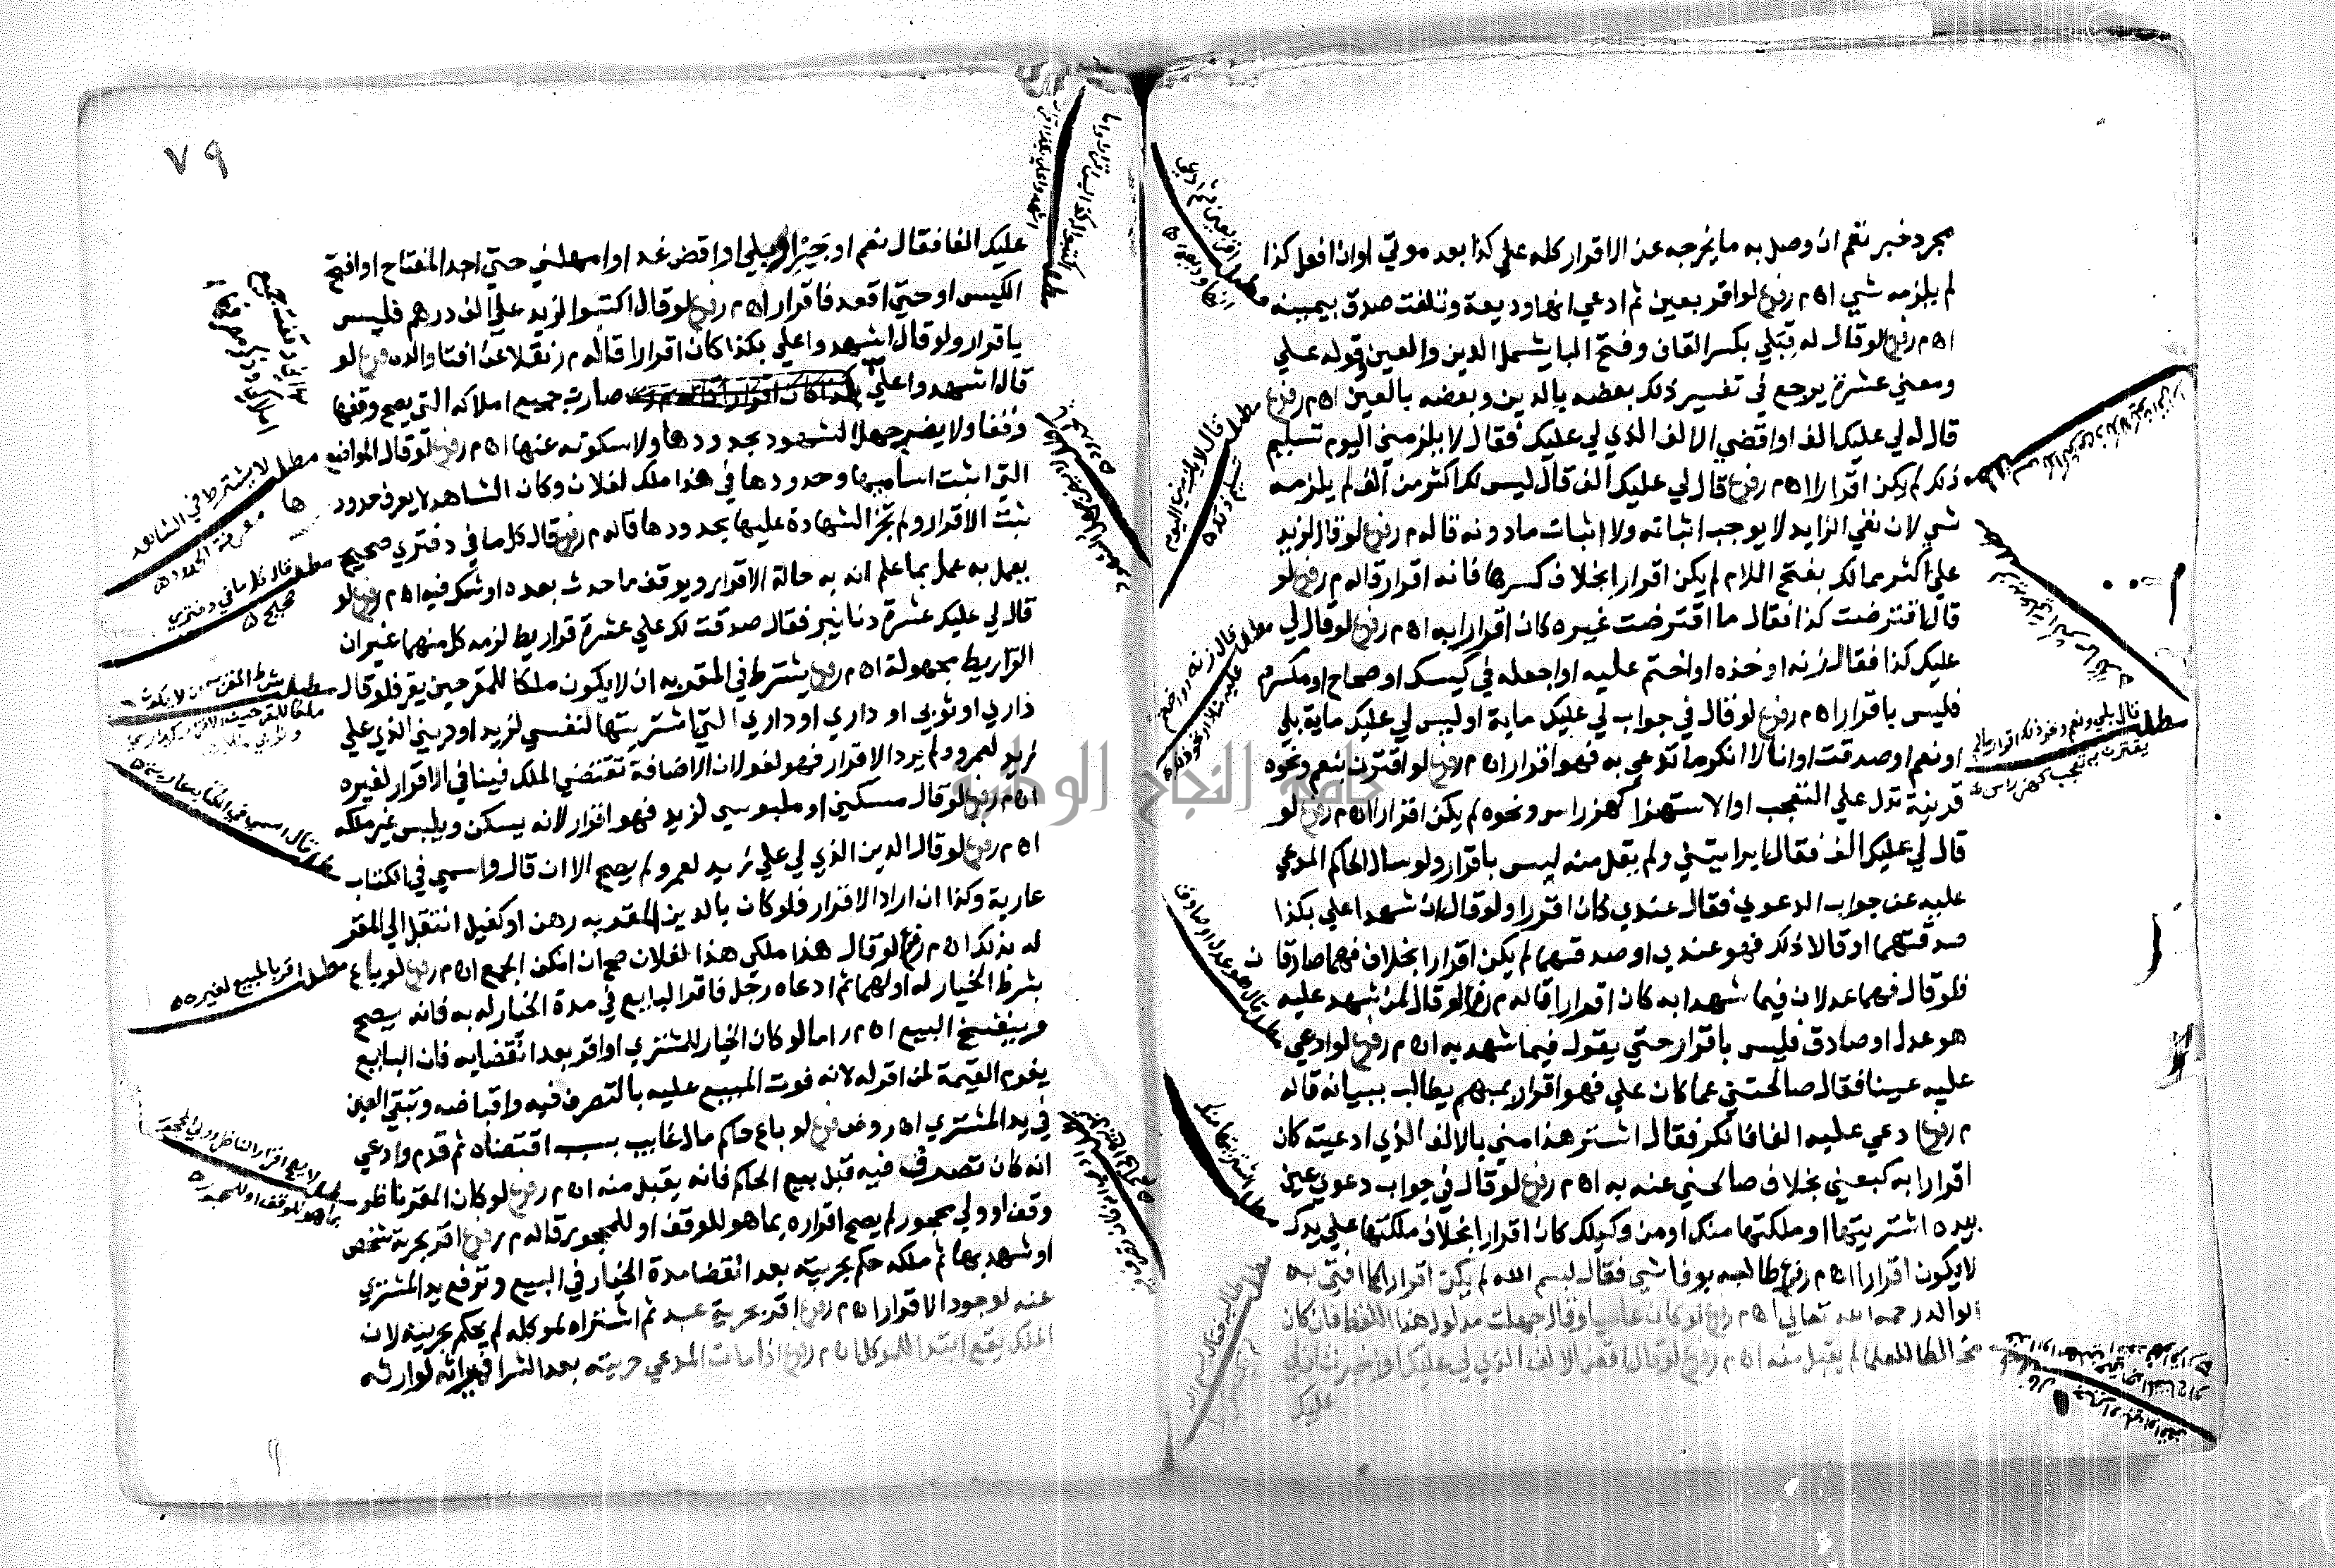 مجرد خبر نعم ان وصل به ما يخرجه عن الاقرار كله علي كذا بعد موتي اوان افعل كذا
لم يلزمه شي اه م ر فرع لو اقر بعين ثم ادعي انها وديعة وتلفت صدق بيمينه
اه م ر فرع لو قال له قبلي بكسر القاف وفتح البا يشمل الدين والعين وقوله علي
ومعي عشرة يرجع في تفسير ذلك بعضه بالدين وبعضه بالعين اه م ر فرع
قال له لي عليك الف او اقضي الالف الذي لي عليك فقال لا يلزمني اليوم تسليم
ذلك لم يكن اقرارا اه م ر فرع قال لي عليك الف قال ليس لك اكثر من الف لم يلزمه
شي لان نفي الزايد لا يوجب اثباته ولا اثبات ما دونه قاله م ر فرع لو قال لزيد
علي اكثر مما لك بفتح اللام لم يكن اقرارا بخلاف كسرها فانه اقرار قاله م ر فرع لو
قال اقترضت كذا فقال ما اقترضت غيره كان اقرارا به اه م ر فرع لو قال لي
عليك كذا فقال زنه او خذه او اختم عليه او اجعله في كيسك او صحاح او مكسرة
فليس باقرار اه م ر فرع لو قال في جواب لي عليك ماية او ليس لي عليك ماية بلي
او نعم او صدقت او انا لا انكر ما تدعي به فهو اقرار اه م ر فرع لو اقترن بنعم ونحوه
قرينة تدل علي التعجب او الاستهزا كهز راس ونحوه لم يكن اقرارا اه م ر فرع لو
قال لي عليك الف فقال ابرايتني ولم يقل منه ليس باقرار ولو سال الحاكم المدعي
عليه عن جواب الدعوي فقال عندي كان اقرارا ولو قال ان شهدا علي بكذا
صدقتهما او قالا ذلك فهو عندي او صدقتهما لم يكن اقرارا بخلاف فهما صادقان
فلو قال فهما عدلان فيما شهدا به كان اقرارا قاله م ر فرع لو قال لمن شهد عليه
هو عدل او صادق فليس باقرار حتي يقول فيما شهد به اه م ر فرع لو ادعي
عليه عينا فقال صالحتني عما كان علي فهو اقرار بمبهم يطالب ببيانه قاله
م ر فرع ادعي عليه الفا فانكر فقال اشتر هذا مني بالالف الذي ادعيته كان
اقرارا به كبعني بخلاف صالحني عنه به اه م ر فرع لو قال في جواب دعوي عين
بيده اشتريتها او ملكتها منك او من وكيلك كان اقرارا بخلاف ملكتها علي يدك
لا يكون اقرارا اه م ر فرع طالبه بوفا شي فقال بسم الله لم يكن اقرارا كما افتي به
الوالد رحمه الله تعالي اه م ر فرع لو كان عاميا وقال جهلت مدلول هذا اللفظ فان كان
لم يقبل منه اه م ر فرع لو قال اقض الالف الذي لي عليك او اخبرت ان لي
عليك
٧٩
عليك الفا فقال نعم او جير او بلي او اقض غد او امهلني حتي اجد المفتاح او افتح
الكيس او حتي اقعد فاقرار اه م ر فرع لو قال اكتبوا لزيد علي الف درهم فليس
باقرار ولو قال اشهدوا علي بكذا كان اقرارا قاله م ر نقلا عن افتا والده فرع لو
قال اشهدوا علي صارت جميع املاكه التي يصح وقفها
وقفا ولا يضر جهل الشهود بحدودها ولا سكوته عنها اه م ر فرع لو قال المواضع
التي اثبت اساميها وحدودها في هذا ملك لفلان وكان الشاهد لا يعرف حدودها
ثبت الاقرار ولم تجز الشهادة عليها بحدودها قاله م ر فرع قال كل ما في دفتري صحيح
يعمل به عمل بما علم انه به حالة الاقرار ويوقف ما حدث بعده او شك فيه اه م ر فرع لو
قال لي عليك عشرة دنانير فقال صدقت لك علي عشرة قواريط لزمه كل منهما غير ان
القراريط مجهولة اه م ر فرع يشترط في المقر به ان لا يكون ملكا للمقر حين يقر فلو قال
داري او ثوبي او داري اوداري التي اشتريتها لنفسي لزيد او ديني الذي علي
زيد لعمرو ولم يرد الاقرار فهو لغو لان الاضافة تقتضي الملك فينافي الاقرار لغيره
اه م ر فرع لو قال مسكني او ملبوسي لزيد فهو اقرار لانه يسكن ويلبس غير ملكه
اه م ر فرع لو قال الدين الذي لي علي زيد لعمرو لم يصح الا ان قال واسمي في الكتاب
عارية وكذا ان اراد الاقرار فلو كان بالدين المقر به رهن او كفيل انتقل الي المقر
له بذلك اه م ر فرع لو قال هذا ملكي هذا لفلان صح ان امكن الجمع اه م ر فرع لو باع
بشرط الخيار له او لهما ثم ادعاه رجل فاقر البايع في مدة الخيار له به فانه يصح
وينفسخ البيع اه م ر اما لو كان الخيار للمشتري او اقر بعد انقضايه فان البايع
يغرم القيمة لمن اقر له لانه فوت المبيع عليه بالتصرف فيه واقباضه وتبقي العين
في يد المشتري اه روض فرع لو باع حاكم مال غايب بسبب اقتضاه ثم قدم وادعي
انه كان تصدق فيه قبل بيع الحاكم فانه يقبل منه اه م ر فرع لو كان المقر ناظر
وقف او ولي محجور لم يصح اقراره بما هو للوقف او للمحجور قاله م ر فرع اقر بحرية شخص
او شهد بها ثم ملكه حكم بحريته بعد انقضا مدة الخيار في البيع وترفع يد المشتري
عنه لوجود الاقرار اه م ر فرع اقر بحرية عبد ثم اشتراه لموكله لم يحكم بحريته لان
الملك يقع ابتدا للموكل اه م ر فرع اذا مات المدعي حريته بعد الشرا فميراثه لوارثه
مطلب لا يشترط في الشاهد
معرفة الحدود
مطلب قال كل ما في دفتري
صحيح
مطلب شرط المقر به ان لا يكون
ملكا للمقر
مطلب اقر بالمبيع لغيره
مطلب لا يصح اقرار الناظر
بما هو للوقف
مطلب قال لا يلزمني اليوم
تسليم ذلك
مطلب قال بلي ونعم ونحو ذلك اقرار مالم
جامعة النجاح الوطنية